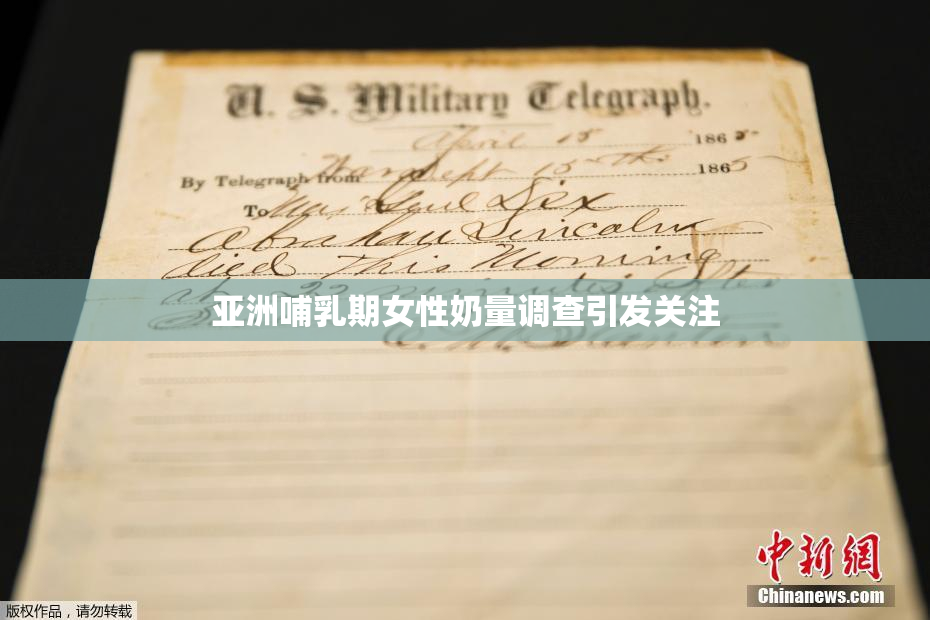 U. S. Military Telegraph.
April 15 1865
By Telegraph from War Dept 15th 1865
To Maj Genl Dix
Abraham Lincoln
died This Morning
at 22 minutes after
亚洲哺乳期女性奶量调查引发关注
E. M. Stanton
中新网
Chinanews.com
版权作品，请勿转载